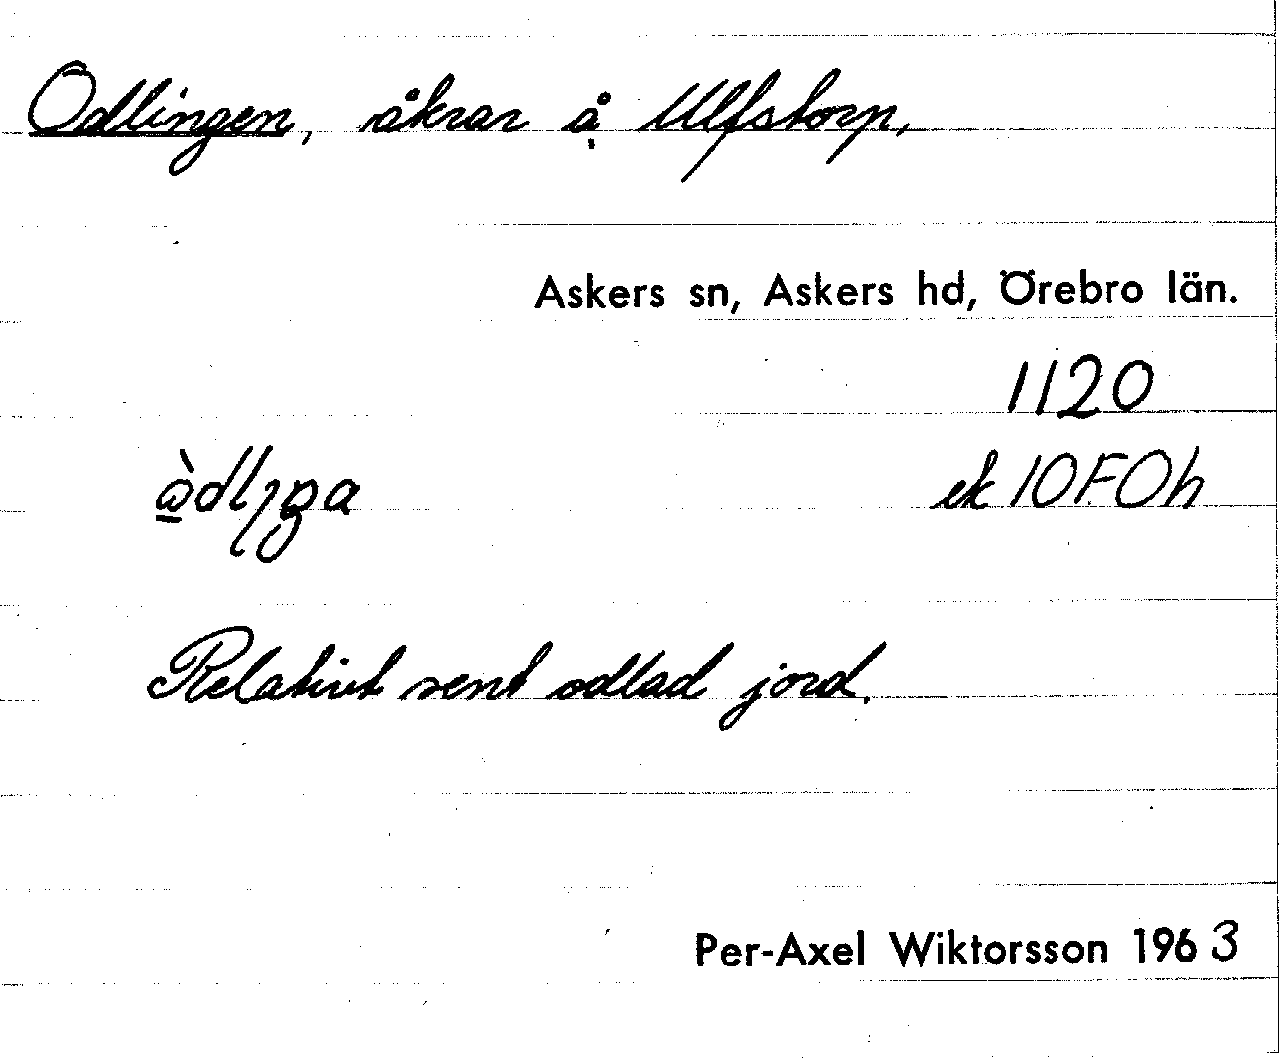 Odlingen, åkrar å Ulfstorp,
Askers sn, Askers hd, Örebro län.
1120
ek 10F0h
Relativt sent odlad jord.
Per-Axel Wiktorsson 1963